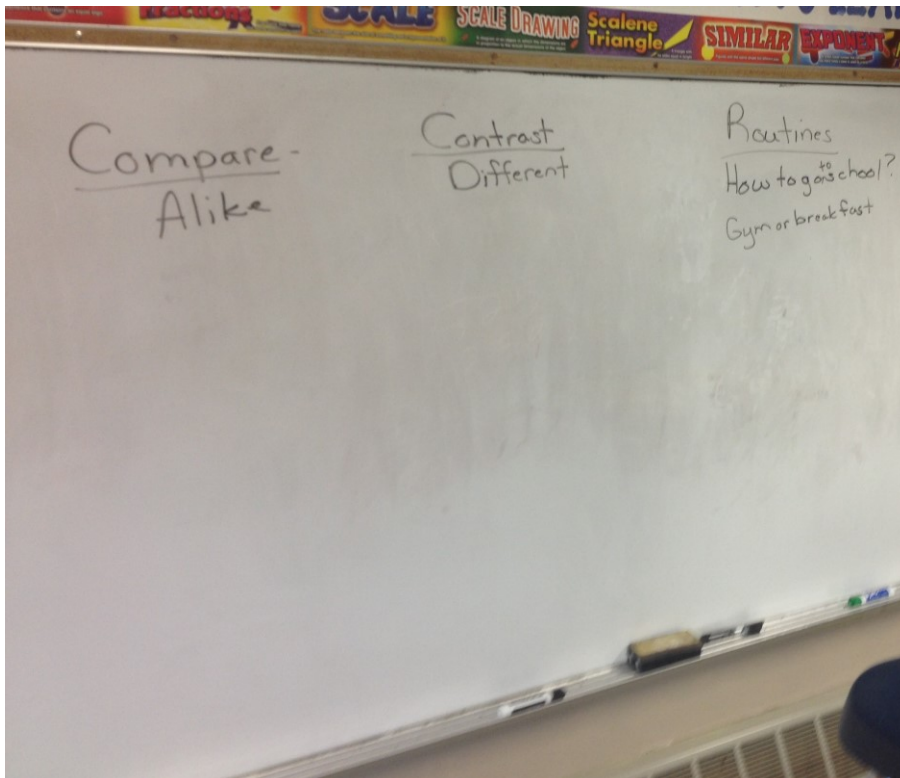 Fractions
SCALE
SCALE DRAWING
Scalene
Triangle
SIMILAR
EXPONENT
Compare -
Alike
Contrast
Different
Routines
How to go to school?
Gym or breakfast